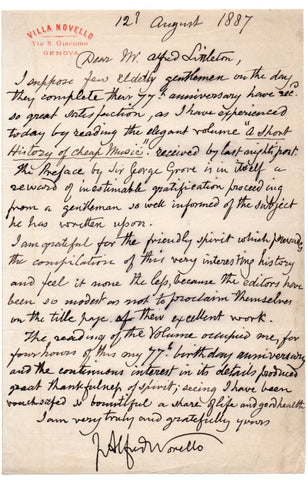 VILLA NOVELLO
Via S. Giacomo
GENOVA
12th August 1887
Dear Mr. Alfred Littleton,
I suppose few elderly gentlemen on the day
they complete their 77th anniversary have recd.
so great satisfaction, as I have experienced
today by reading the elegant volume "a Short
History of Cheap Music", received by last nights post.
The Preface by Sir George Grove is in itself a
reward of inestimable gratification proceeding
from a gentleman so well informed of the subject
he has written upon.
I am grateful for the friendly spirit which pervades
the compilation of this very interesting history
and feel it none the less, because the editors have
been so modest as not to proclaim themselves
on the title page of their excellent work.
The reading of the Volume occupied me, for
four hours of this my 77th birthday anniversary
and the continuous interest in its details produced
great thankfulness of spirit; seeing I have been
vouchsafed so bountiful a share of life and good health.
I am very truly and gratefully yours
J. Alfred Novello